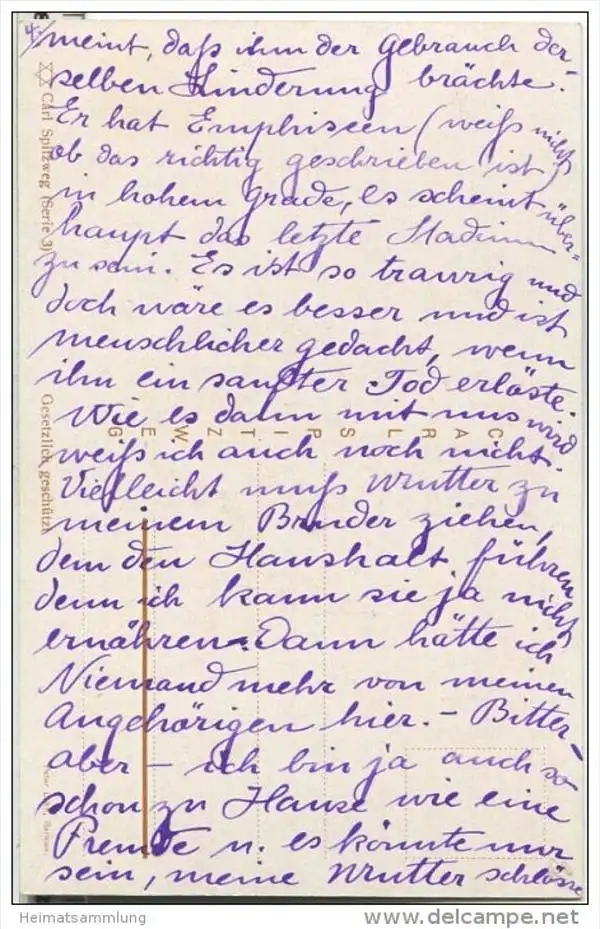 4.)
meint, daß ihm der Gebrauch der-
selben Linderung brächte.
Er hat Emphiseen (weiß nicht
ob das richtig geschrieben ist)
in hohem Grade, es scheint über-
haupt das letzte Stadium
zu sein. Es ist so traurig und
doch wäre es besser und ist
menschlicher gedacht, wenn
ihn ein sanfter Tod erlöste.
Wie es dann mit uns wird
weiß ich auch noch nicht.
Vielleicht muß Mutter zu
meinem Bruder ziehen,
dem den Haushalt führen
denn ich kann sie ja nicht
ernähren. Dann hätte ich
Niemand mehr von meinen
Angehörigen hier. – Bitter
aber – ich bin ja auch so
schon zu Hause wie eine
Fremde u. es könnte nur
sein, meine Mutter schlösse
Carl Spitzweg (Serie 3)
Gesetzlich geschützt
CARL SPITZWEG
Heimatsammlung
delcampe.net